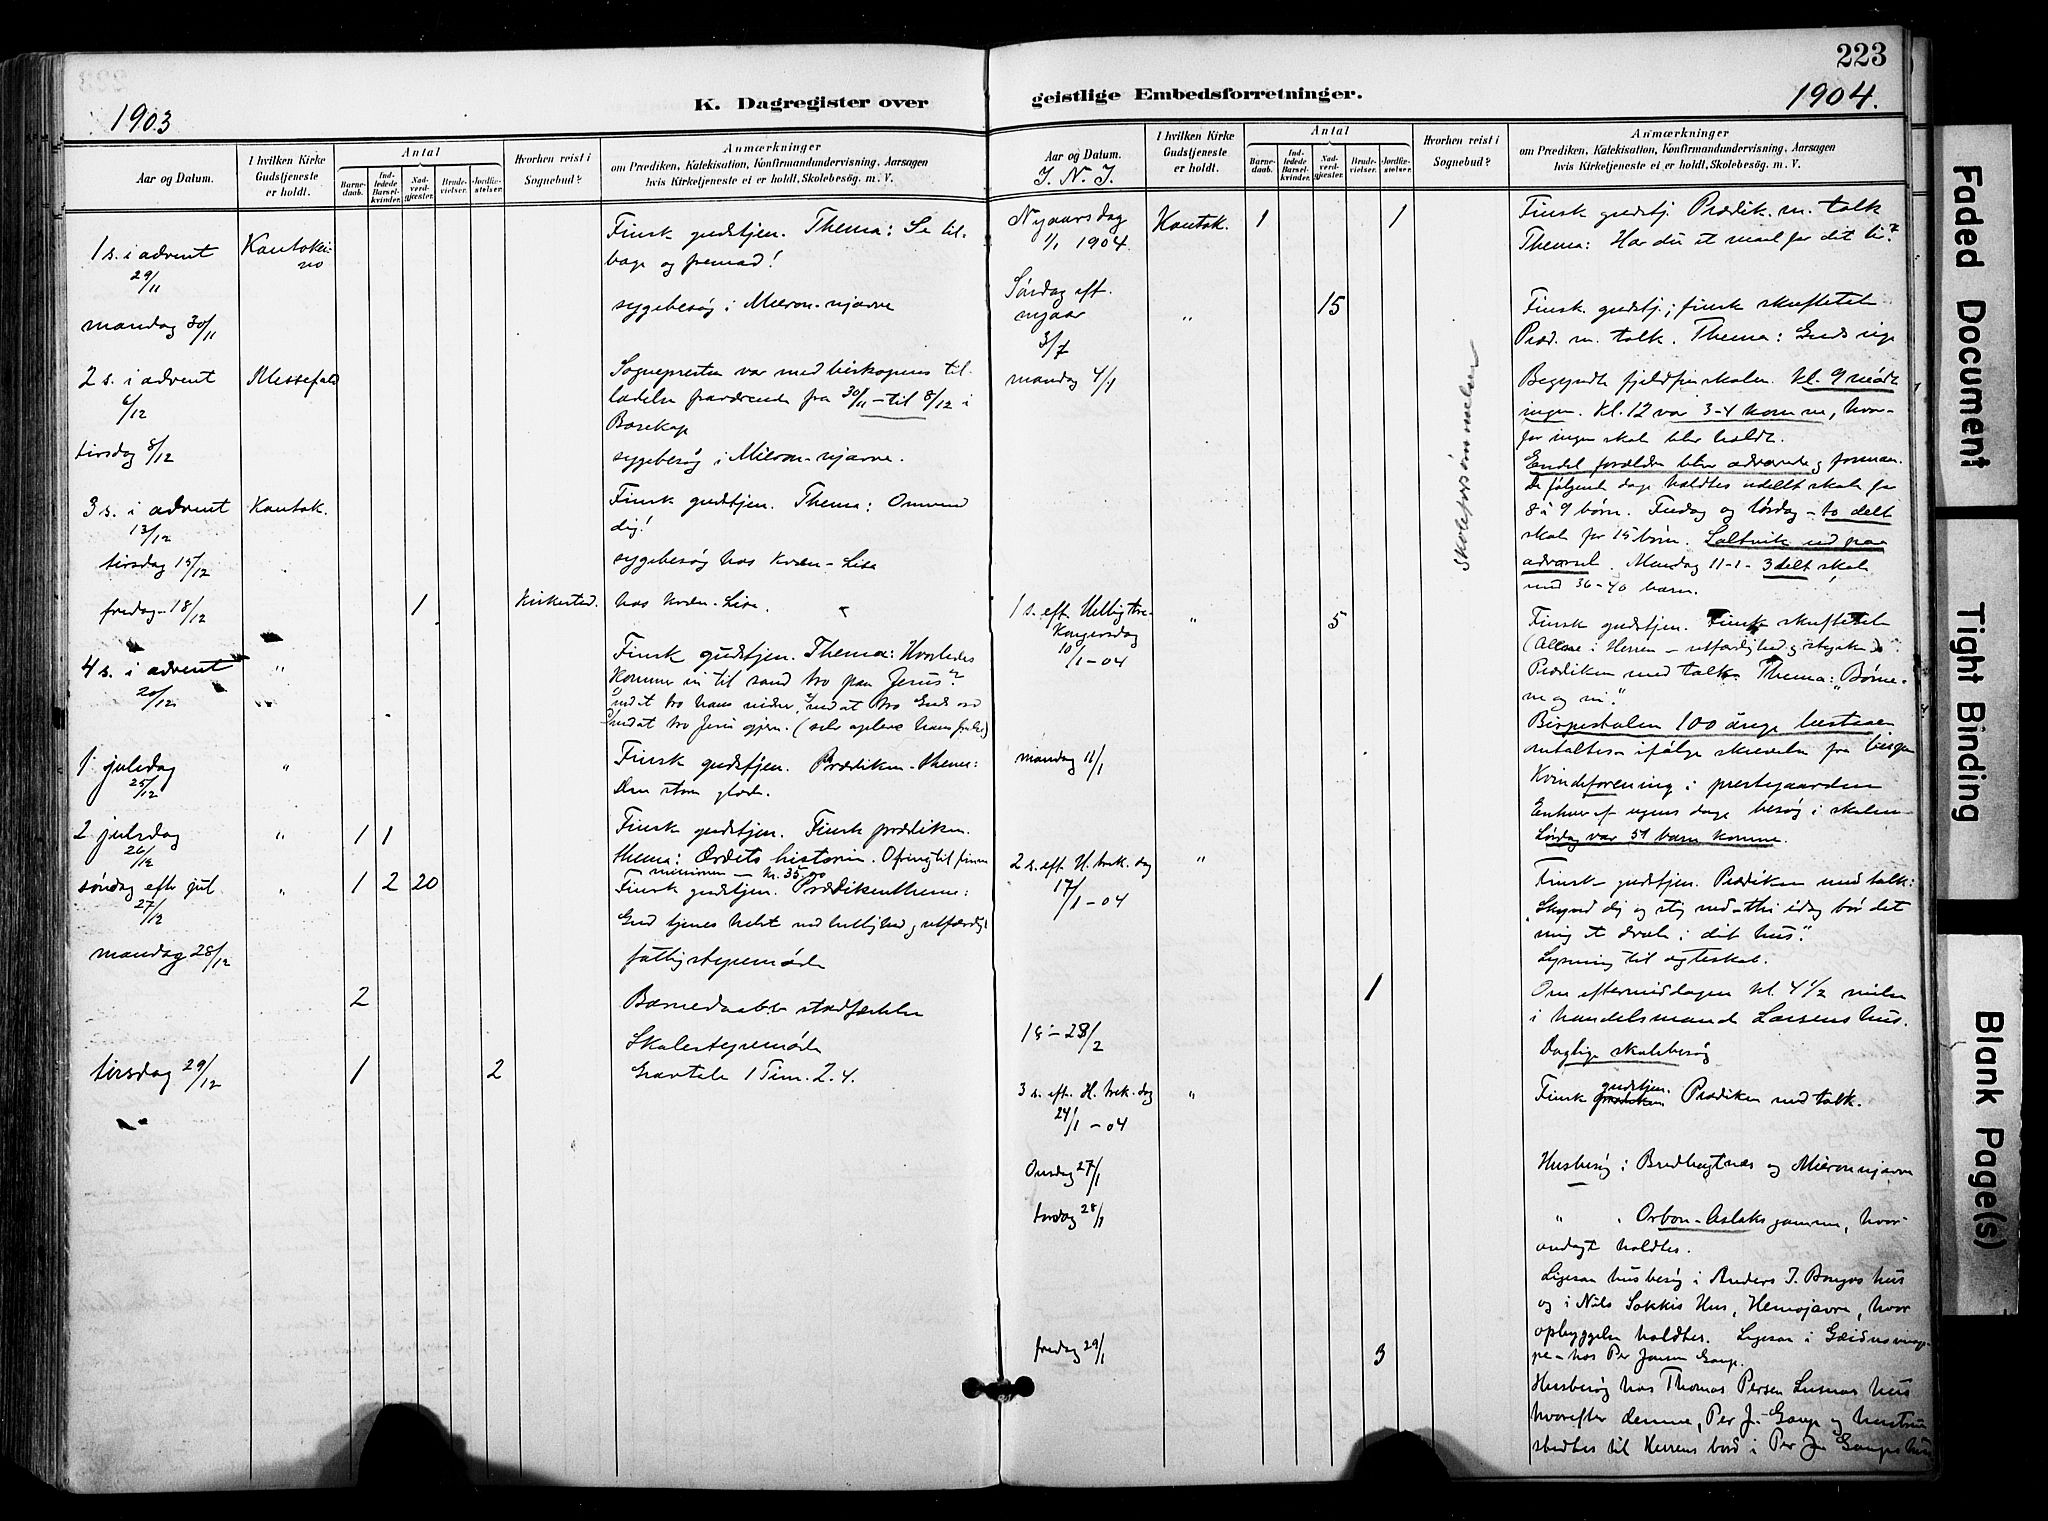 223
1903
K. Dagregister over
geistlige Embedsforretninger.
1904.
Aar og Datum.
I hvilken Kirke
Gudstjeneste
er holdt.
Antal
Barne-
daab.
Ind-
ledede
Barsel-
kvinder.
Nad-
verd-
gjæster.
Brude-
vielser.
Jordfæ-
stelser.
Hvorhen reist i
Sognebud?
Anmærkninger
om Prædiken, Katekisation, Konfirmandundervisning, Aarsagen
hvis Kirketjeneste ei er holdt, Skolebesøg. m. V.
1 s. i advent
29/11
Kautokei-
no
Finsk gudstjen. Thema: Se til-
bage og fremad!
mandag 30/11
sygebesøg i Mieron-njavve
2 s. i advent
6/12
Messefald
Sognepresten var med biskopens til-
ladelse fraværende fra 30/11 - til 8/12 i
Bosekop
tirsdag 8/12
sygebesøg i Mieron-njavve.
3 s. i advent
13/12
Kautok.
Finsk gudstjen. Thema: Omvend
dig!
tirsdag 15/12
sygebesøg hos Kvæn-Lisa
fredag 18/12
1
Kirkested.
hos Kvæn-Lisa.
4 s. i advent
20/12
"
Finsk gudstjen. Thema: Hvorledes
kommer vi til sand tro paa Jesus?
1 juledag
25/12
"
Finsk gudstjen. Prædiken-thema:
Den store glæde.
2 juledag
26/12
"
1 1
Finsk gudstjen. Finsk prædiken.
Thema: Ordets historie. Ofring til finne-
missionen - kr. 35,00
søndag efter jul
27/12
"
1 2 20
Finsk gudstjen. Prædikenthema:
Gud tjenes helst ved hellighed og retfærdigh
mandag 28/12
fattigstyremøde
2
Barnedaabs stadfæstelse
Skolestyremøde
tirsdag 29/12
1 2
Gravtale 1 Tim. 2.4.
Aar og Datum.
J. N. J.
I hvilken Kirke
Gudstjeneste
er holdt.
Antal
Barne-
daab.
Ind-
ledede
Barsel-
kvinder.
Nad-
verd-
gjester.
Brude-
vielser.
Jordfæ-
stelser.
Hvorhen reist i
Sognebud?
Anmærkninger
om Prædiken, Katekisation, Konfirmandundervisning, Aarsagen
hvis Kirketjeneste ei er holdt, Skolebesøg. m. V.
Nyaarsdag
1/1 1904.
Kautok.
1 1
Finsk gudstj. Prædik. m. tolk
Thema: Har du et maal for dit liv?
Søndag eft.
nyaar
3/1
"
15
Finsk gudstj.; finsk skriftetale
Præd. m. tolk. Thema: Guds
mandag 4/1
Skoleforsømmelser
Begyndte fjeldfinskolen. kl. 9 mødte
ingen. Kl. 12 var 3-4 komne, hvor-
for ingen skole blev holdt.
Endel forældre blev advarede og forman.
De følgende dage holdtes udelt skole for
8 à 9 børn. Fredag og lørdag - to delt
skole for 15 børn. Saltvik ud paa
advarsel. Mandag 11-1- 3 delt skole
med 36-40 barn.
1 s. eft. Hellig tre-
kongersdag
10/1-04
"
5
Finsk gudstjen. Finsk skriftetale
(Allene i Herren - retfærdighed og styrke)
Prædiken med tolk. Thema: "Børne-
ne og vi."
Bispestolen 100 årige bestaaen
omtaltes ifølge skrivelse fra
mandag 11/1
Kvindeforening i prestegaarden
Enhver af ugens dage besøg i skolen
Lørdag var 51 barn komne.
2 s. eft. H. trek. dag
17/1-04
"
Finsk gudstjen. Prædiken med tolk:
"Skynd dig og stig ned - thi idag bør det
mig at dvæle i dit hus".
Lysning til ægteskab.
1
Om eftermiddagen kl. 4 1/2 vielse
i handelsmand Larsens hus.
18-23/2
Daglige skolebesøg
3 s. eft. H. trek. dag
24/1-04
"
gudstjen.
Finsk prædiken Prædiken med tolk.
Onsdag 27/1
Husbesøg i Bredbugtnes og Mieronnjavve
torsdag 28/1
" " Orbon-Aslaks gamme, hvor
andagt holdtes.
Ligesaa husbesøg i Anders J. Bongos hus
og i Nils Sokkis Hus, Hemojavre, hvor
opbyggelse holdtes. Ligesaa i
pe - hos Per Jonsen Gaup.
fredag 29/1
3
Husbesøg hos Thomas Persen hus
hvorefter denne, Per J. Gaup og hustru
stedtes til Herrens bord i Per J. Gaups hus
Faded Document
Tight Binding
Blank Page(s)